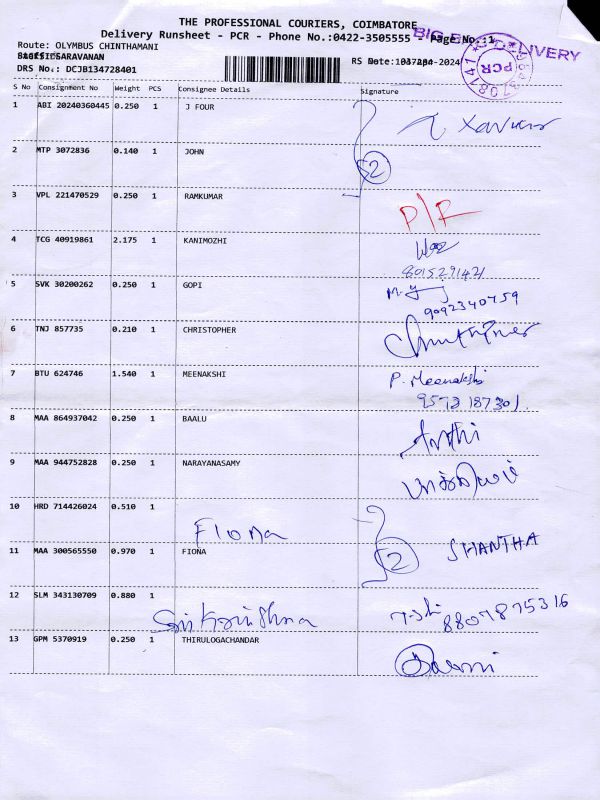 THE PROFESSIONAL COURIERS, COIMBATORE
Delivery Runsheet - PCR - Phone No.:0422-3505555 - Page No.:1
Route: OLYMBUS CHINTHAMANI
SARAVANAN
DRS No.: DCJB134728401
RS Date:
PCR
S No Consignment No Weight PCS Consignee Details Signature
1 ABI 20240360445 0.250 1 J FOUR Xavier
2 MTP 3072836 0.140 1 JOHN 2
3 VPL 221470529 0.250 1 RAMKUMAR P/R
4 TCG 40919861 2.175 1 KANIMOZHI
8015291421
5 SVK 30200262 0.250 1 GOPI
9092340759
6 TNJ 857735 0.210 1 CHRISTOPHER
7 BTU 624746 1.540 1 MEENAKSHI P. Meenakshi
9578187301
8 MAA 864937042 0.250 1 BAALU
9 MAA 944752828 0.250 1 NARAYANASAMY
10 HRD 714426024 0.510 1 Fiona
11 MAA 300565550 0.970 1 FIONA 2 SHANTHA
12 SLM 343130709 0.880 1 Srikrishna 8807875316
13 GPM 5370919 0.250 1 THIRULOGACHANDAR